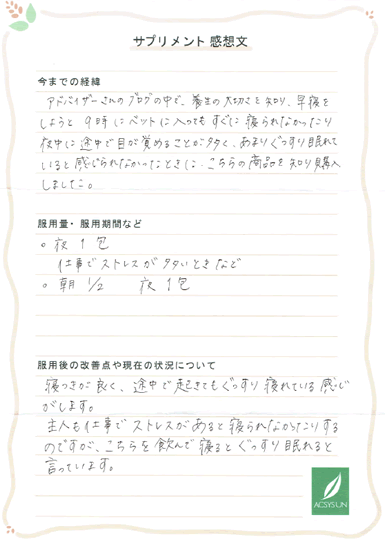 サプリメント 感想文
今までの経緯
アドバイザーさんのブログの中で、養生の大切さを知り、早寝を
しようと 9時にベットに入ってもすぐに寝られなかったり
夜中に途中で目が覚めることが多く、あまりぐっすり眠れて
いると感じられなかったときに、こちらの商品を知り購入
しました。
服用量・服用期間など
○ 夜 1包
仕事でストレスが多いときなど
○ 朝 1/2 夜 1包
服用後の改善点や現在の状況について
寝つきが良く、途中で起きてもぐっすり寝れている感じ
がします。
主人も仕事でストレスがあると寝られなかったりする
のですが、こちらを飲んで寝るとぐっすり眠れると
言っています。
ACSYSUN